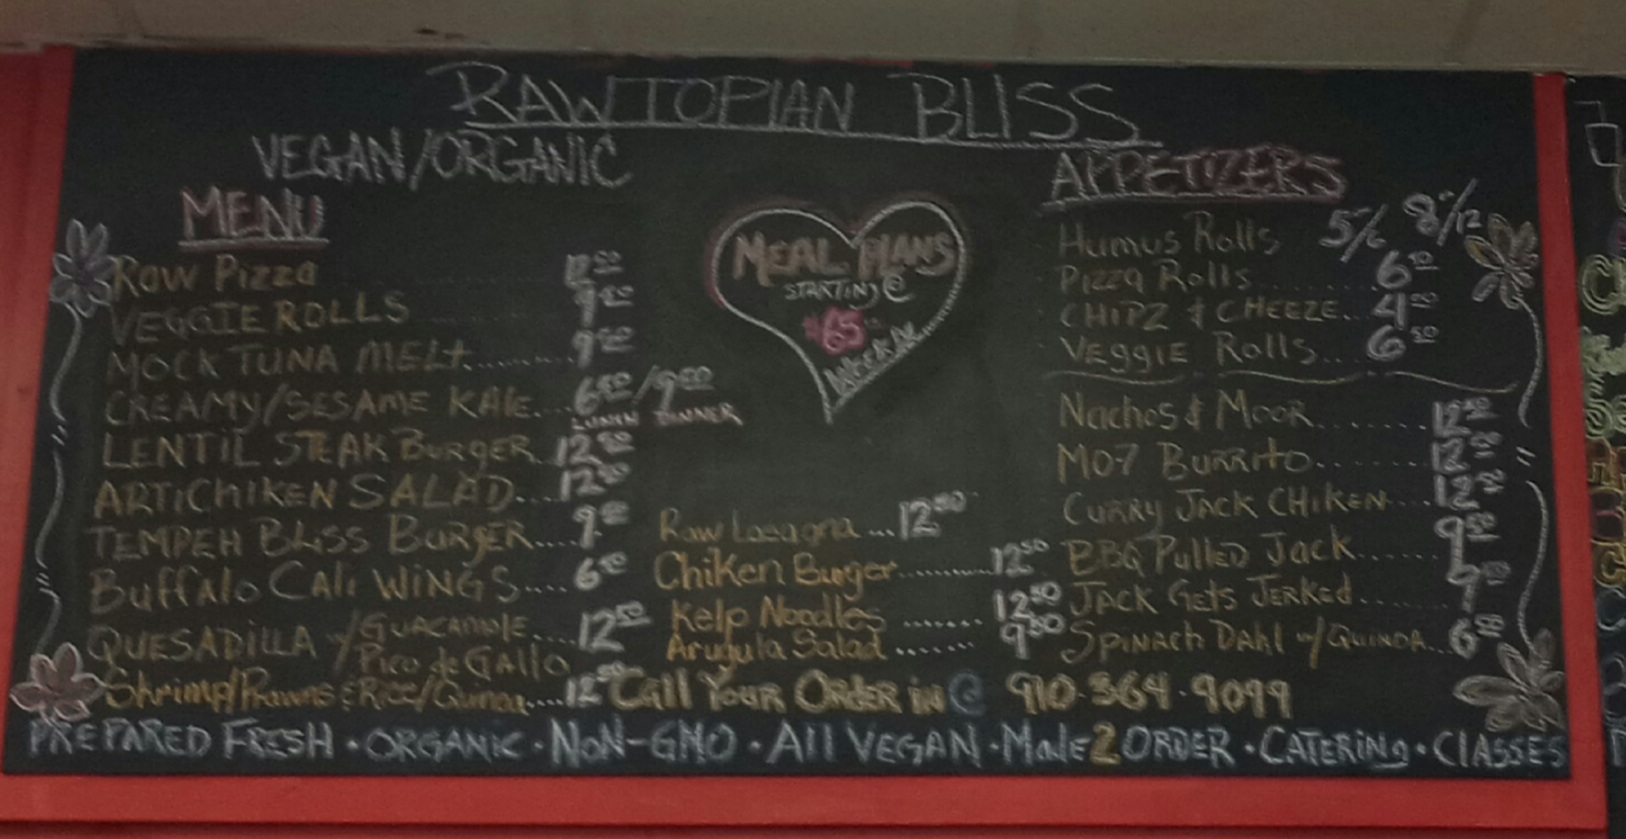 RAWTOPIAN BLISS
VEGAN/ORGANIC
MENU
Raw Pizza
VEGGIE ROLLS
MOCK TUNA MELT.........
CREAMY/SESAME KALE....
LUNCH DINNER
LENTIL STEAK BURGER...12
ARTICHIKEN SALAD....12
TEMPEH BLISS BURGER....9
Buffalo Cali WINGS....6
QUESADILLA w/ GUACAMOLE....12⁵⁰
Pico de GALLO
Shrimp/Prawns & Rice/Quinoa....12
MEAL PLANS
STARTING @
$65
WEEKLY
Raw Lasagna ...12⁵⁰
Chiken Burger..........12⁵⁰
Kelp Noodles ....... 12⁵⁰
Arugula Salad ....... 9
APPETIZERS
Humus Rolls 5-/6 8-/12
Pizza Rolls.........6
CHIPZ & CHEEZE..4
VEGGIE Rolls...6⁵⁰
Nachos & MOOR........12
MO7 BURRITO........12
CURRY JACK CHIKEN....12
BBQ PULLED Jack.......9⁵⁰
JACK GETS JERKED........9
SPINACH DAHL w/QUINOA...6
Call YOUR ORDER in @ 910-364-9099
PREPARED FRESH · ORGANIC · NON-GMO · All VEGAN · Made 2 ORDER · CATERING · ClASSES